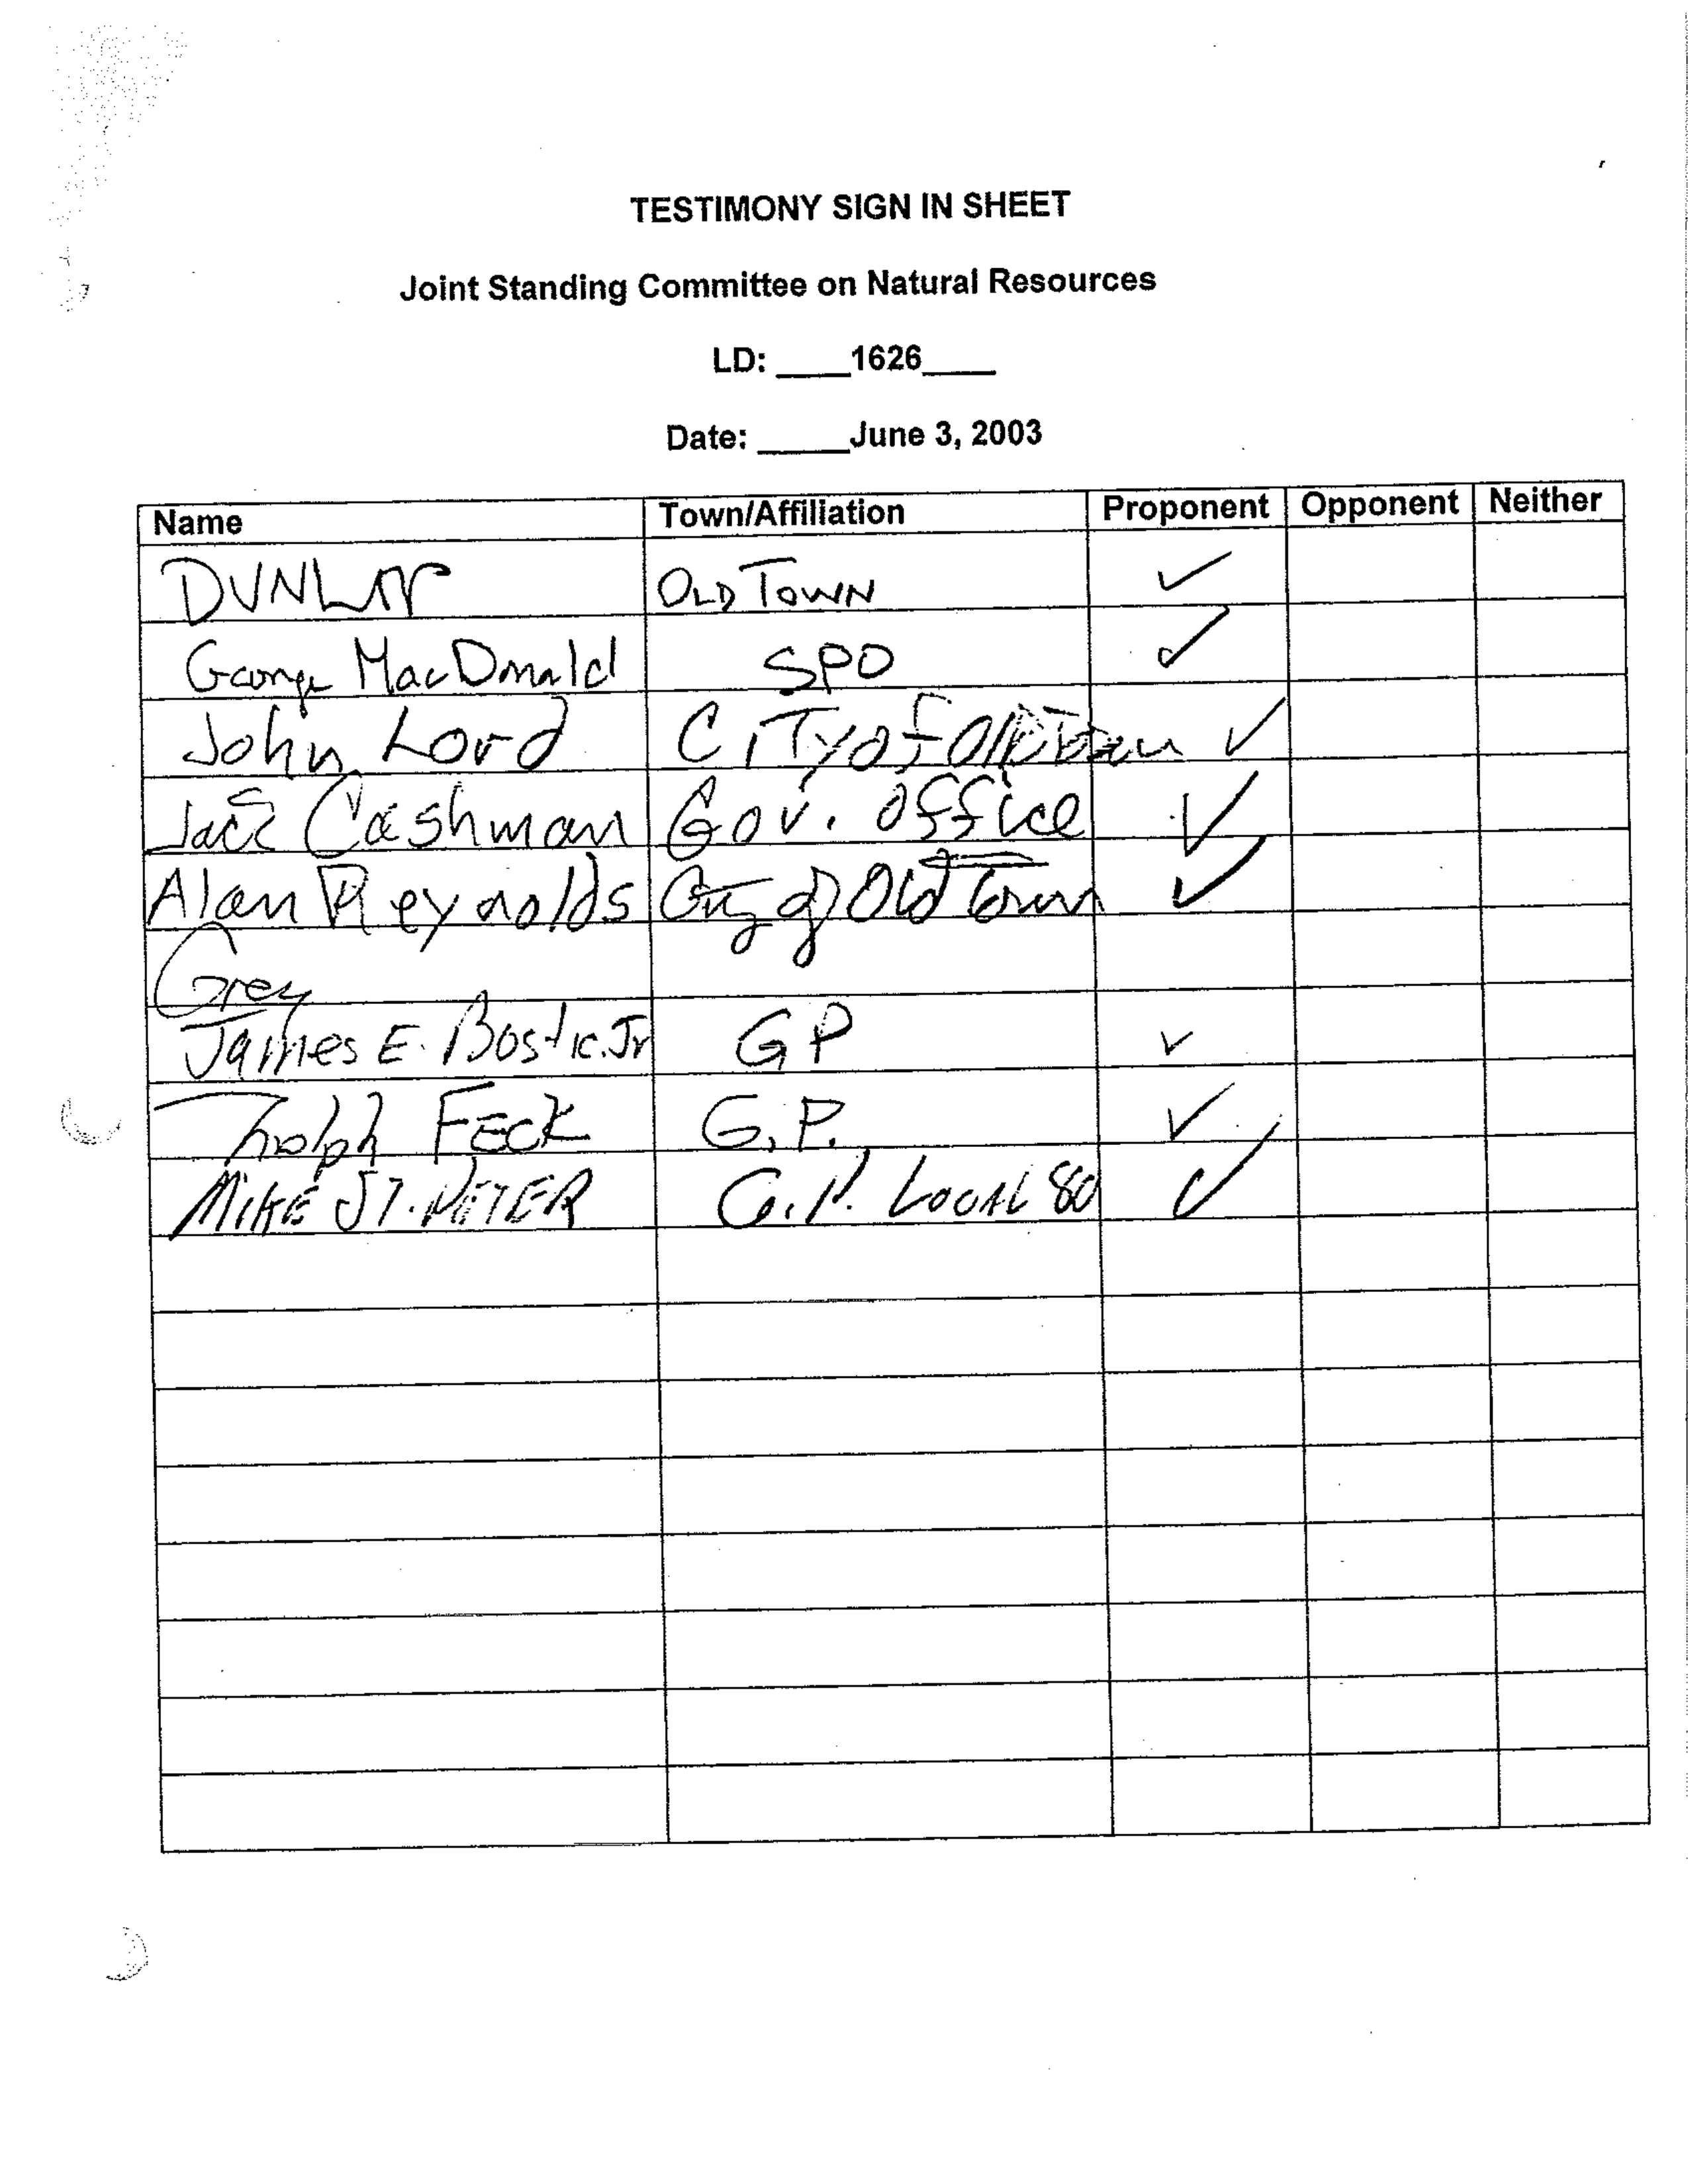 TESTIMONY SIGN IN SHEET
Joint Standing Committee on Natural Resources
LD: ____1626____
Date: _____June 3, 2003
Name Town/Affiliation Proponent Opponent Neither
DUNLAP OLD TOWN ✓
George MacDonald SPO ✓
John Lord City of Old Town ✓
Jack Cashman Gov. Office ✓
Alan Reynolds City of Old Town ✓
Grey
James E. Bostic. Jr GP ✓
FECK G.P. ✓
MIKE ST. PETER G.P. LOCAL 80 ✓